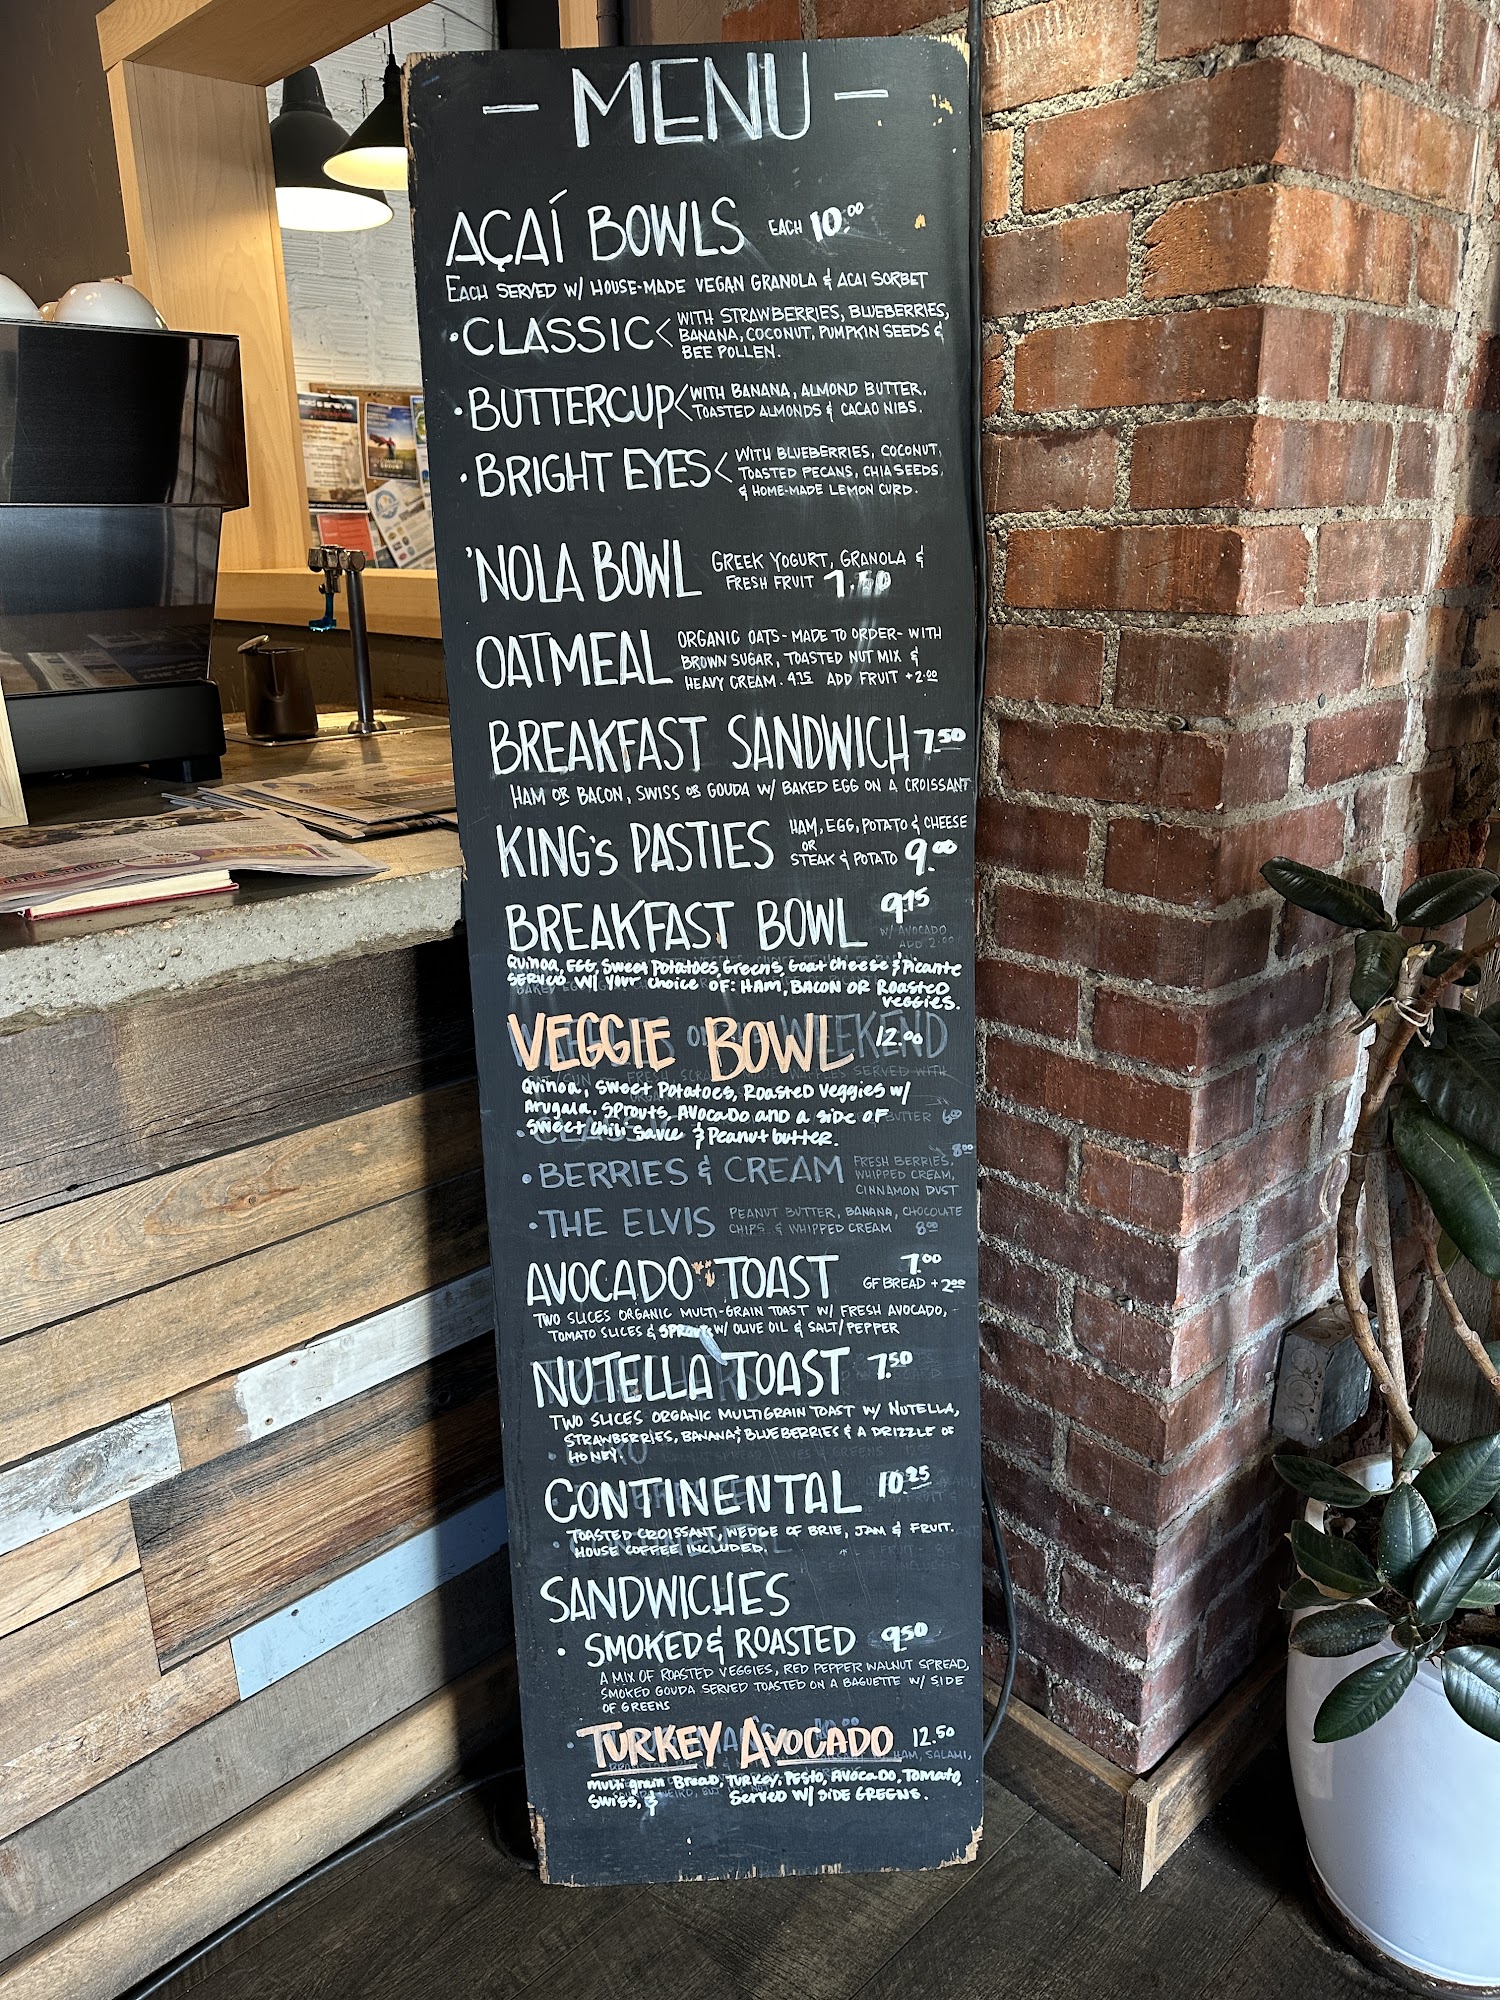 - MENU -
AÇAÍ BOWLS EACH 10.00
EACH SERVED W/ HOUSE-MADE VEGAN GRANOLA & ACAI SORBET
• CLASSIC < WITH STRAWBERRIES, BLUEBERRIES,
BANANA, COCONUT, PUMPKIN SEEDS &
BEE POLLEN.
• BUTTERCUP < WITH BANANA, ALMOND BUTTER,
TOASTED ALMONDS & CACAO NIBS.
• BRIGHT EYES < WITH BLUEBERRIES, COCONUT,
TOASTED PECANS, CHIA SEEDS,
& HOME-MADE LEMON CURD.
'NOLA BOWL GREEK YOGURT, GRANOLA &
FRESH FRUIT 7.50
OATMEAL ORGANIC OATS - MADE TO ORDER - WITH
BROWN SUGAR, TOASTED NUT MIX &
HEAVY CREAM. 4.75 ADD FRUIT +2.00
BREAKFAST SANDWICH 7.50
HAM OR BACON, SWISS OR GOUDA W/ BAKED EGG ON A CROISSANT
KING'S PASTIES HAM, EGG, POTATO & CHEESE
OR
STEAK & POTATO 9.00
BREAKFAST BOWL 9.75
W/ AVOCADO
ADD 2.00
Quinoa, EGG, Sweet Potatoes, Greens, Goat cheese & Picante
SERVED W/ Your choice OF: HAM, BACON OR Roasted
veggies.
VEGGIE BOWL 12.00
WEEKEND
Quinoa, Sweet Potatoes, Roasted Veggies w/
Arugala, Sprouts, Avocado and a side OF
BUTTER 6.00
Sweet chili Sauce & Peanut butter.
• BERRIES & CREAM FRESH BERRIES, 8.00
WHIPPED CREAM,
CINNAMON DUST
• THE ELVIS PEANUT BUTTER, BANANA, CHOCOLATE
CHIPS & WHIPPED CREAM 8.00
AVOCADO TOAST 7.00
GF BREAD +2.00
TWO SLICES ORGANIC MULTI-GRAIN TOAST W/ FRESH AVOCADO,
TOMATO SLICES & SPROUTS W/ OLIVE OIL & SALT/PEPPER
NUTELLA TOAST 7.50
TWO SLICES ORGANIC MULTIGRAIN TOAST W/ NUTELLA,
STRAWBERRIES, BANANA, BLUEBERRIES & A DRIZZLE OF
HONEY.
CONTINENTAL 10.25
TOASTED CROISSANT, WEDGE OF BRIE, JAM & FRUIT.
HOUSE COFFEE INCLUDED.
SANDWICHES
• SMOKED & ROASTED 9.50
A MIX OF ROASTED VEGGIES, RED PEPPER WALNUT SPREAD,
SMOKED GOUDA SERVED TOASTED ON A BAGUETTE W/ SIDE
OF GREENS
TURKEY AVOCADO 12.50
HAM, SALAMI,
multigrain Bread, Turkey, Pesto, Avocado, Tomato,
Swiss, & Served W/ SIDE GREENS.